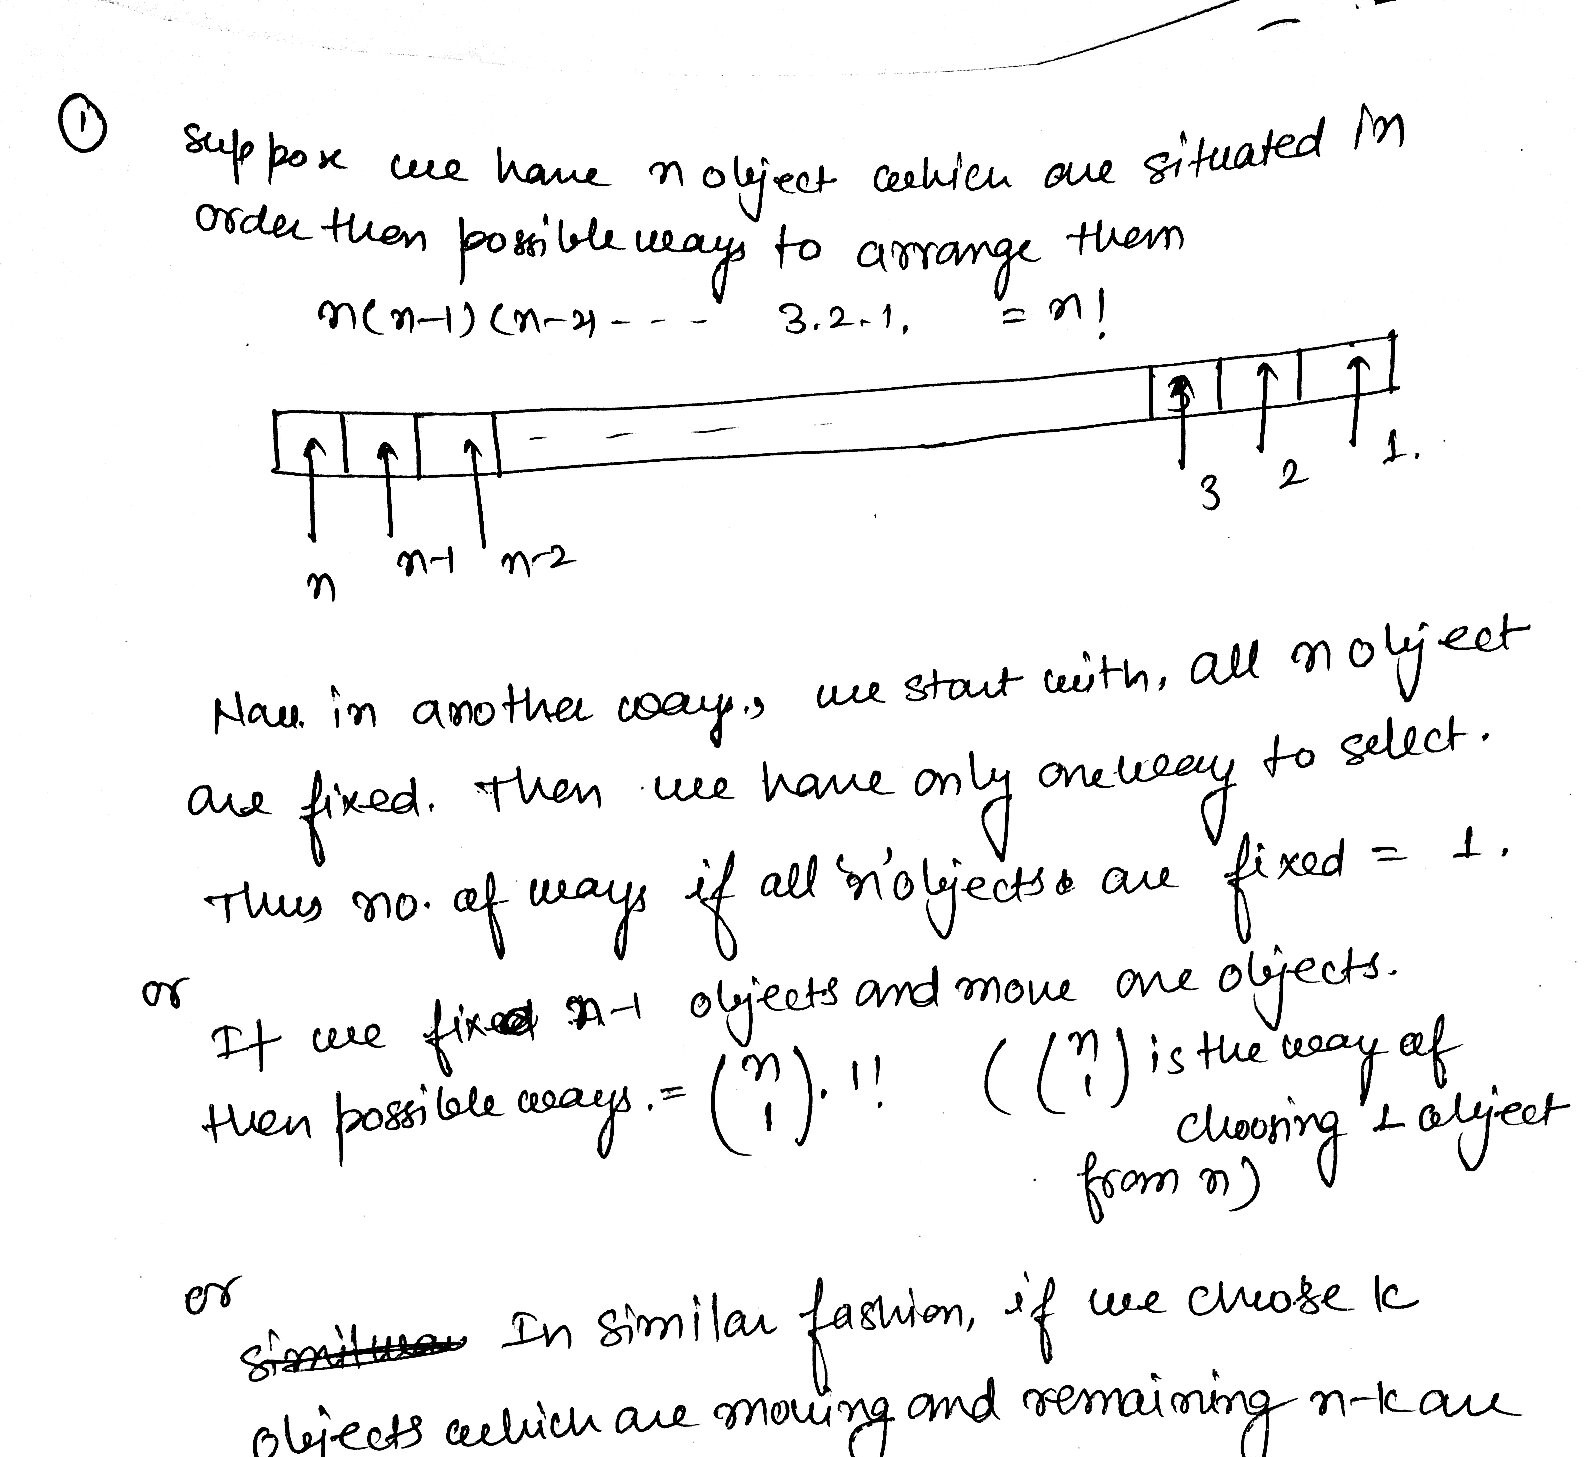 ①
suppose we have n object which are situated in
order then possible ways to arrange them
n(n-1)(n-2) - - - 3.2.1. = n!
3 2 1.
n n-1 n-2
Now in another ways, we start with, all n object
are fixed. Then we have only one way to select.
Thus no. of ways if all 'n' objects are fixed = 1.
or
If we fixed n-1 objects and move one objects.
then possible ways. = (n 1). 1! ( (n 1) is the way of
choosing 1 object
from n)
or
In similar fashion, if we choose k
objects which are moving and remaining n-k are